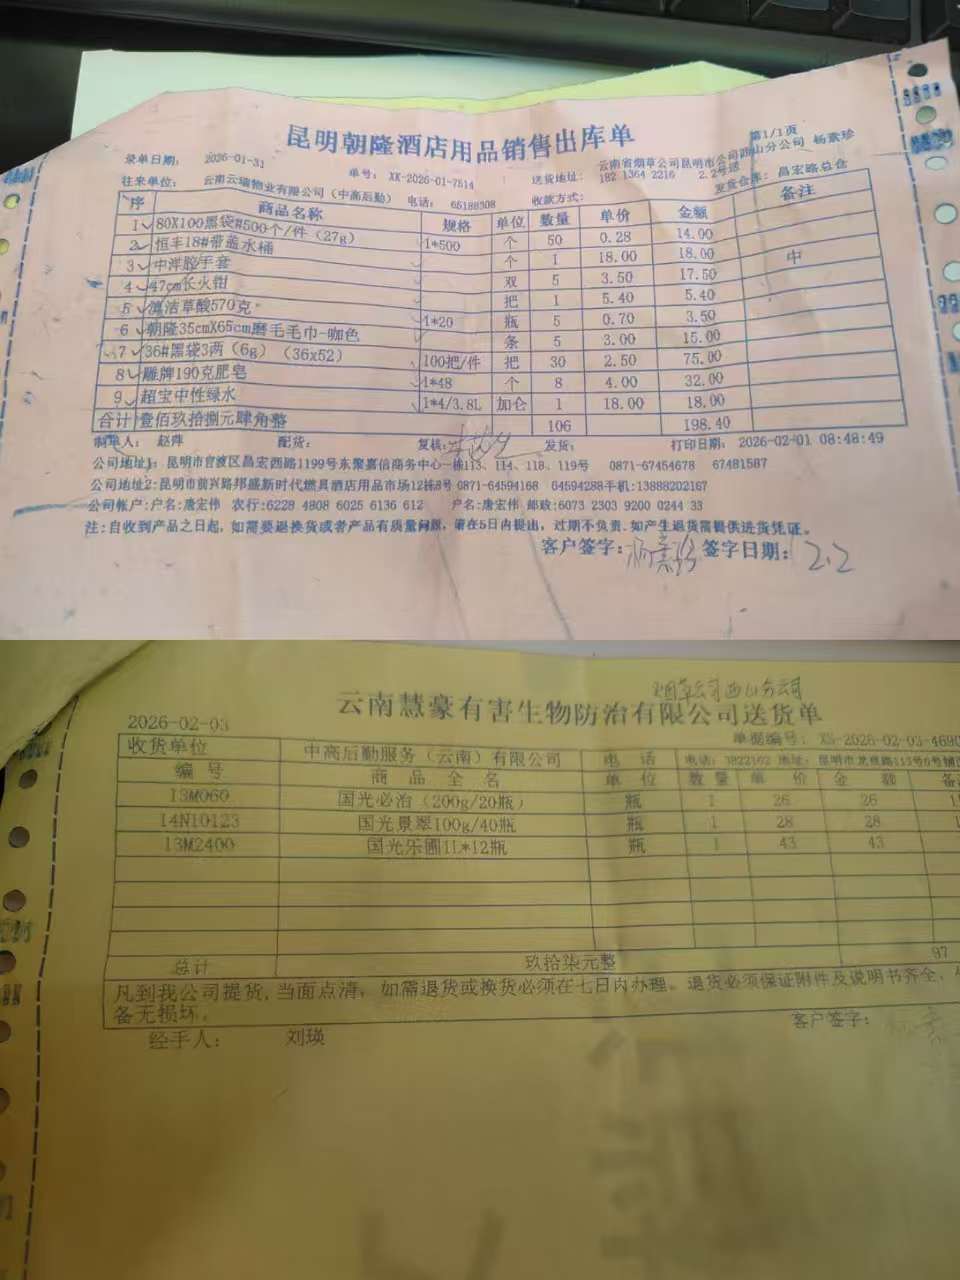 昆明朝隆酒店用品销售出库单
第1/1页
录单日期： 2026-01-31 单号： XK-2026-01-7514 送货地址： 云南省烟草公司昆明市公司西山分公司 杨紫珍
182 1364 2216 2.2号送
往来单位： 云南云瑞物业有限公司（中高后勤） 电话： 65188308 收款方式： 发货仓库： 昌宏路总仓
序 商品名称 规格 单位 数量 单价 金额 备注
1 80X100黑袋#500个/件（27g） 1*500 个 50 0.28 14.00
2 恒丰18#带盖水桶 个 1 18.00 18.00 中
3 中洋胶手套 双 5 3.50 17.50
4 47cm长火钳 把 1 5.40 5.40
5 滇洁草酸570克 1*20 瓶 5 0.70 3.50
6 朝隆35cmX65cm磨毛毛巾-咖色 条 5 3.00 15.00
7 36#黑袋3两（6g）（36x52） 100把/件 把 30 2.50 75.00
8 雕牌190克肥皂 1*48 个 8 4.00 32.00
9 超宝中性绿水 1*4/3.8L 加仑 1 18.00 18.00
合计 壹佰玖拾捌元肆角整 106 198.40
制单人： 赵萍 配货： 复核： 发货： 打印日期： 2026-02-01 08:48:49
公司地址1: 昆明市官渡区昌宏西路1199号东聚嘉信商务中心一栋113、114、118、119号 0871-67454678 67481587
公司地址2:昆明市前兴路邦盛新时代燃具酒店用品市场12栋8号 0871-64594168 64594288手机:13888202167
公司帐户:户名:唐宏伟 农行:6228 4808 6025 6136 612 户名:唐宏伟 邮政:6073 2303 9200 0244 33
注:自收到产品之日起，如需要退换货或者产品有质量问题，请在5日内提出，过期不负责.如产生退货需提供进货凭证。
客户签字: 杨紫珍 签字日期: 2.2
烟草公司西山分公司
云南慧豪有害生物防治有限公司送货单
2026-02-03 单据编号： XS-2026-02-03-4690
收货单位 中高后勤服务（云南）有限公司 电 话 电话: 3822162 地址: 昆明市龙泉路
编 号 商 品 全 名 单 位 数 量 单 价 金 额
13M060 国光必治（200g/20瓶） 瓶 1 26 26
14N10123 国光景翠100g/40瓶 瓶 1 28 28
13M2400 国光乐圃1l*12瓶 瓶 1 43 43
总计 玖拾柒元整 97
凡到我公司提货,当面点清，如需退货或换货必须在七日内办理。退货必须保证附件及说明书齐全、
备无损坏。
经手人： 刘瑛 客户签字：